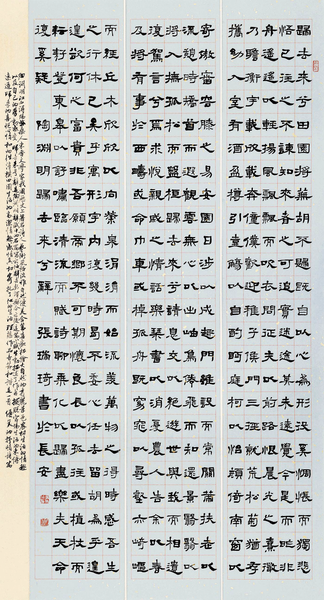 歸去来兮田園將蕪胡不歸既自以心為形役奚惆悵而獨悲
悟已往之不諫知来者之可追實迷途其未遠覺今是而昨非
舟遥遥以輕颺風飄飄而吹衣問征夫以前路恨晨光之熹微
乃瞻衡宇載欣載奔僮僕歡迎稚子候門三徑就荒松菊猶存
攜幼入室有酒盈樽引壺觴以自酌眄庭柯以怡顏倚南窗以
寄傲審容膝之易安園日涉以成趣門雖設而常關策扶老以
流憩時矯首而遐觀雲無心以出岫鳥倦飛而知還景翳翳以
將入撫孤松而盤桓歸去来兮請息交以絕遊世與我而相遺
復駕言兮焉求悅親戚之情話樂琴書以消憂農人告余以春
及將有事於西疇或命巾車或棹孤舟既窈窕以尋壑亦崎嶇
而經丘木欣欣以向榮泉涓涓而始流羨萬物之得時感吾生
之行休已矣乎寓形宇內復幾時曷不委心任去留胡為乎遑
遑欲何之富貴非吾願帝鄉不可期懷良辰以孤往或植杖而
耘耔登東皋以舒嘯臨清流而賦詩聊乘化以歸盡樂夫天命
復奚疑 陶淵明歸去来兮辭 張瑞琦書於長安